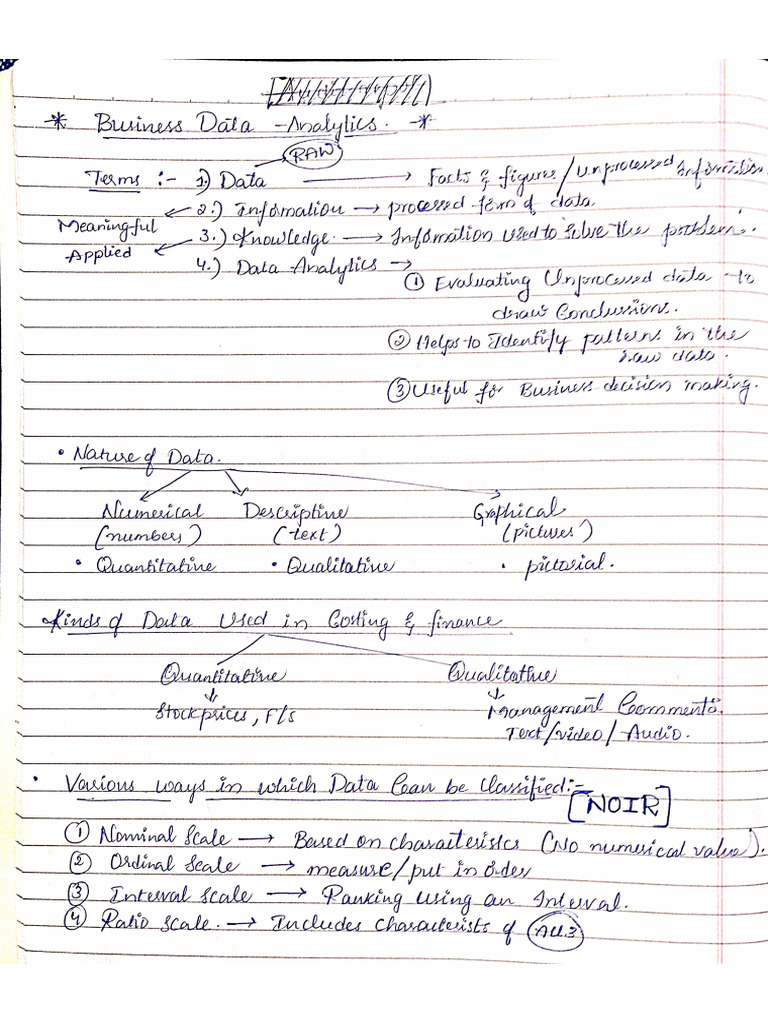 * Business Data Analytics. *
RAW
Terms :- 1.) Data → Facts & figures / unprocessed Information.
Meaningful ← 2.) Information → processed form of data.
Applied ← 3.) Knowledge. → Infomation used to solve the problem.
4.) Data Analytics →
① Evaluating Unprocessed data to
draw Conclussions.
② Helps to Identify patterns in the
raw data.
③ Useful for Business decision making.
• Nature of Data.
Numerical Descriptive Graphical
(numbers) (text) (pictures)
• Quantitative • Qualitative • pictorial.
Kinds of Data Used in Costing & finance
Quantitative Qualitative
↓ ↓
Stock prices, F/s Management Comments.
Text/video/Audio.
• Various ways in which Data Can be Classified:-
[NOIR]
① Nominal Scale → Based on characteristics (No numerical value).
② Ordinal Scale → measure/put in order
③ Interval Scale → Ranking using an Interval.
④ Ratio Scale. → Includes Characterists of All 3